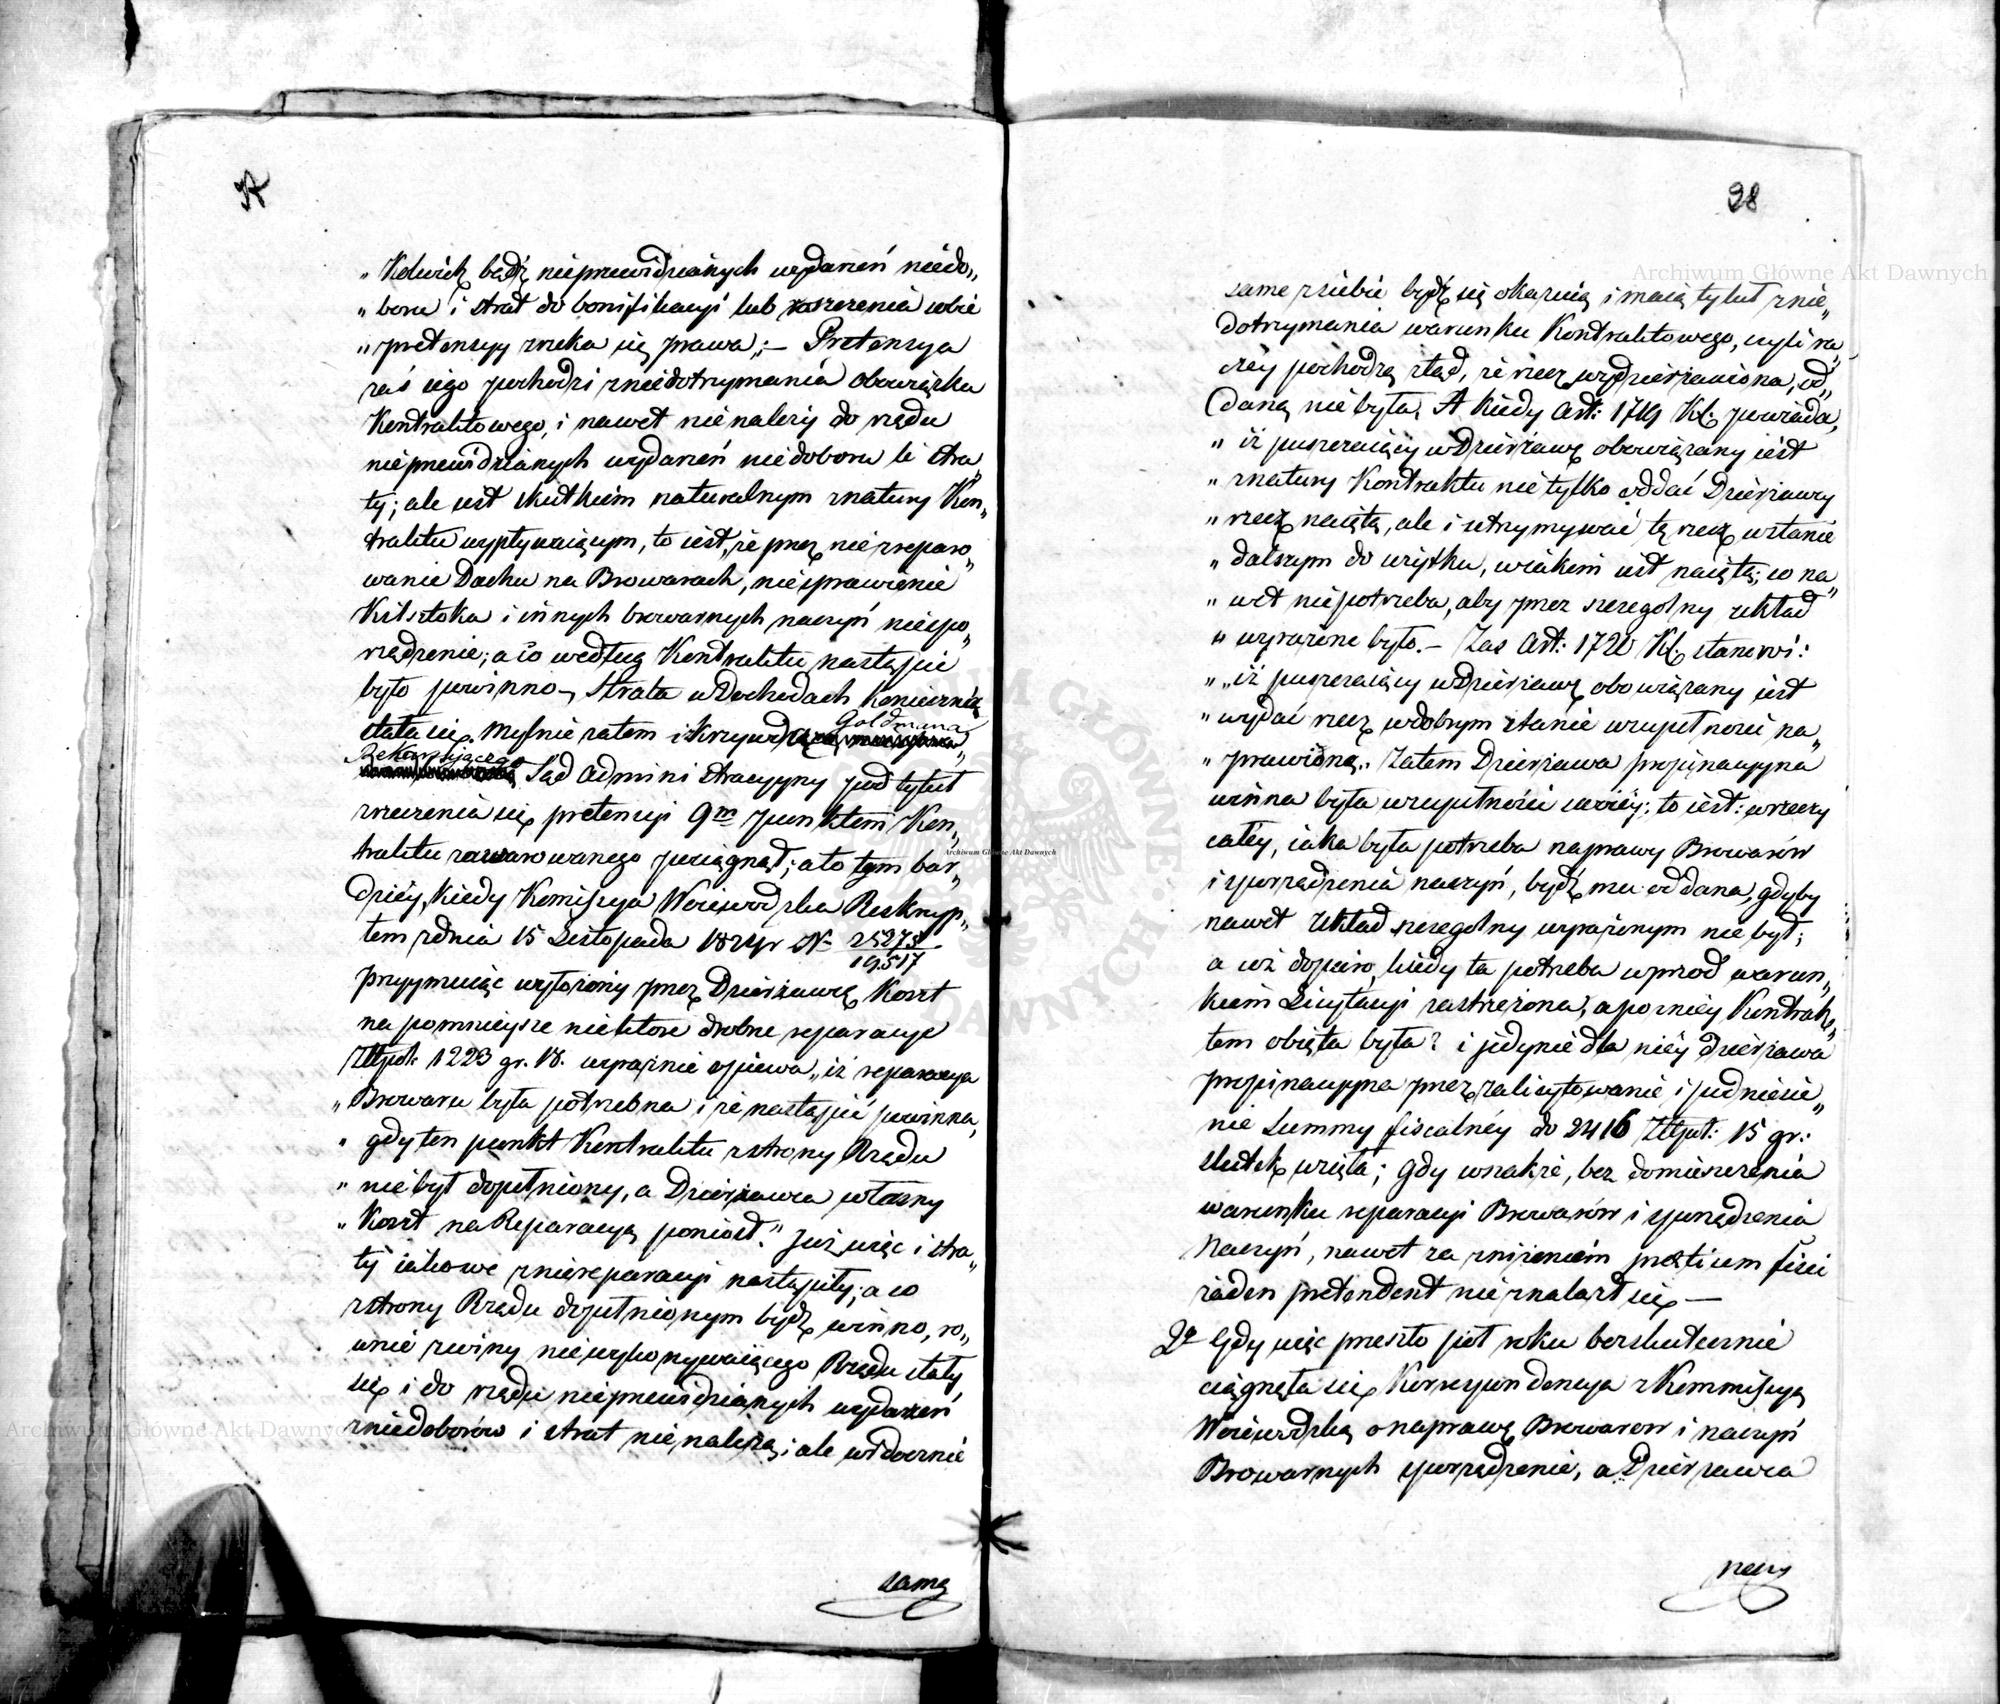 „Kolwiek bądź nieprzewidzianych wydarzeń niedo„
„boru i strat do bonifikacyi lub roszczenia sobie
„pretensyy zrzeka się prawa„;— Pretensya
zaś iego pochodzi z niedotrzymania obowiązku
Kontraktowego, i nawet nie należy do rzędu
nieprzewidzianych wydarzeń niedoboru le stra„
ty; ale iest skutkiem naturalnym z natury Kon„
traktu wypływaiącym, to iest, że przez niezreparo„
wanie Dachu na Browarach, niesprawienie
Kilsztoka i innych browarnych naczyń niespo„
rządzenie; a co według Kontraktu nastąpić
było powinno, Strata w Dochodach koniecznie
stała się. Mylnie zatem i z krzywdą Goldmana
Rekursującego Sąd Administracyyny pod tytuł
zrzeczenia się pretensyi 9m punktem Kon„
traktu zawarowanego pociągnął; a to tym bar„
dziéy, kiedy Kommissya Woiewódzka Reskryp„
tem z dnia 15 Listopada 1824r No 25275/19517
przyymuiąc wyłożony przez Dzierżawcę Koszt
na pomnieysze niektóre drobne reparacye
Złłpol: 1223 gr. 18. wyraźnie opiewa„ iż reparacya
„Browaru była potrzebna i że nastąpić powinna,
„gdy ten punkt Kontraktu z strony Rządu
„nie był dopełniony, a Dzierżawca własny
„Koszt na Reparacyą poniósł." Już więc i stra„
ty iakowe z niereparacyi nastąpiły; a co
z strony Rządu dopełnionym bydź winno, ró„
wnie z winy niewykonywaiącego Rządu stały
się i do rzędu nieprzewidzianych wydarzeń
z niedoborów i strat nie należą; ale widocznie
same
98
same z siebie bydź się okazuią i maią tytuł z nie„
dotrzymania warunku Kontraktowego, czyli ra„
czéy pochodzą ztąd, że rzecz wydzierżawiona, od„
daną nie była. A kiedy Art: 1719 K.C. powiada,
„iż puszczaiący w Dzierżawę obowiązany iest
„z natury Kontraktu nie tylko oddać Dzierżawcy
„rzecz naiętą, ale i utrzymywać tę rzecz w stanie
„dalszym do użytku, w iakim iest naięta; co na„
„wet nie potrzeba, aby przez szczególny układ
„wyrażone było.— Zas Art: 1720 K.C. stanowi:
„„iż puszczaiący w Dzierżawę obowiązany iest
„wydać rzecz w dobrym stanie w zupełności na„
„prawioną„. Zatem Dzierżawa propinacyyna
winna była w zupełności swoiéy; to iest: w rzeczy
całéy, iaka była potrzeba naprawy Browarów
i sporządzenia naczyń, bydź mu oddana, gdyby
nawet układ szczególny wyrażonym nie był;
a cóż dopiero, kiedy ta potrzeba wprzód warun„
kiem Licytacyi zastrzeżona, a pozniéy Kontrak„
tem obięta była? i jedynie dla niéy dzierżawa
propinacyyna przez zalicytowanie i podniesie„
nie Summy fiscalnéy do 2416 Złłpol: 15 gr:
skutek wzięła; gdy wszakże, bez domieszczenia
warunku reparacyi Browarów i sporządzenia
Naczyń, nawet za zniżeniem praetium fisci
żaden pretendent nie znalazł się —
2o Gdy więc przeszło pół roku bezskutecznie
ciągnęła się Korrespondencya z Kommissyą
Woiewódzką o naprawę Browarów i naczyń
Browarnych sporządzenie, a Dzierżawca